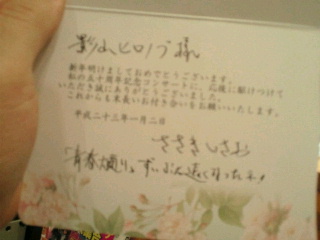 影山ヒロノブ様
新年明けましておめでとうございます。
私の五十周年記念コンサートに、応援に駆けつけて
いただき誠にありがとうございました。
これからも末長いお付き合いをお願いいたします。
平成二十三年一月二日
ささきいさお
「青春
ずいぶん遠くなったネ!